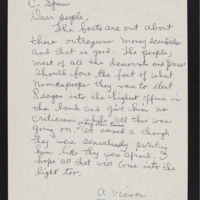 C-Span
Dear people,
The facts are out about
these outrageous money scandals
and that is good. The people,
most of all the democrats and press
should face the fact of what
nincompoops they were to elect
Reagan into the highest office in
the land and give him no
criticism while all this was
going on, it seemed as though
they were senselessly protecting
him like they were afraid. I
hope all that will come into the
light too.
A viewer